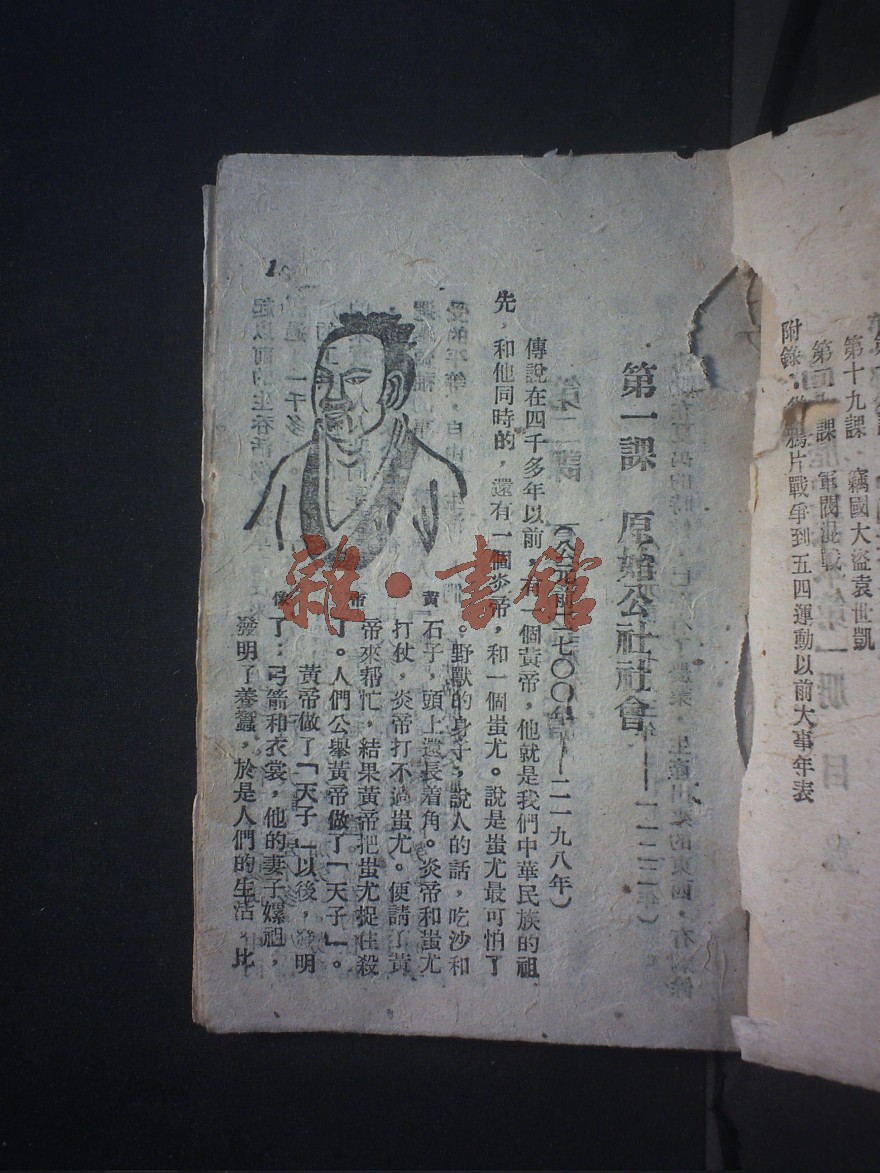 第十九課 竊國大盜袁世凱
軍閥混戰
附錄：從鴉片戰爭到五四運動以前大事年表
第一課 原始公社社會
二七〇〇年——二一九八年）
傳說在四千多年以前，有一個黃帝，他就是我們中華民族的祖
先，和他同時的，還有一個炎帝，和一個蚩尤。說是蚩尤最可怕了
。野獸的身子，說人的話，吃沙和
石子，頭上還長着角。炎帝和蚩尤
打仗，炎帝打不過蚩尤。便請了黃
帝來帮忙，結果黃帝把蚩尤捉住殺
了。人們公舉黃帝做了「天子」。
黃帝做了「天子」以後，發明
了：弓箭和衣裳，他的妻子嫘祖，
發明了養蠶，於是人們的生活，比
黃帝像
1
雜·書館